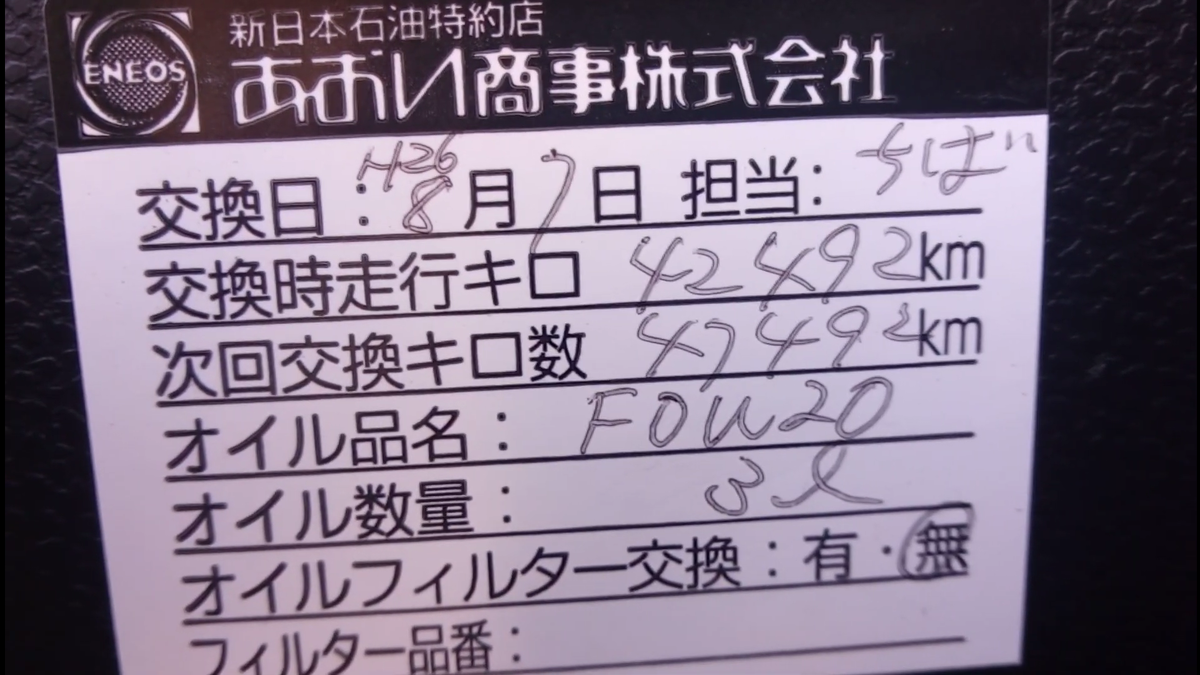 ENEOS
新日本石油特約店
あおい商事株式会社
交換日：H26 8月7日 担当：ちば
交換時走行キロ 42492km
次回交換キロ数 47492km
オイル品名：F0W20
オイル数量：3ℓ
オイルフィルター交換：有・無
フィルター品番：